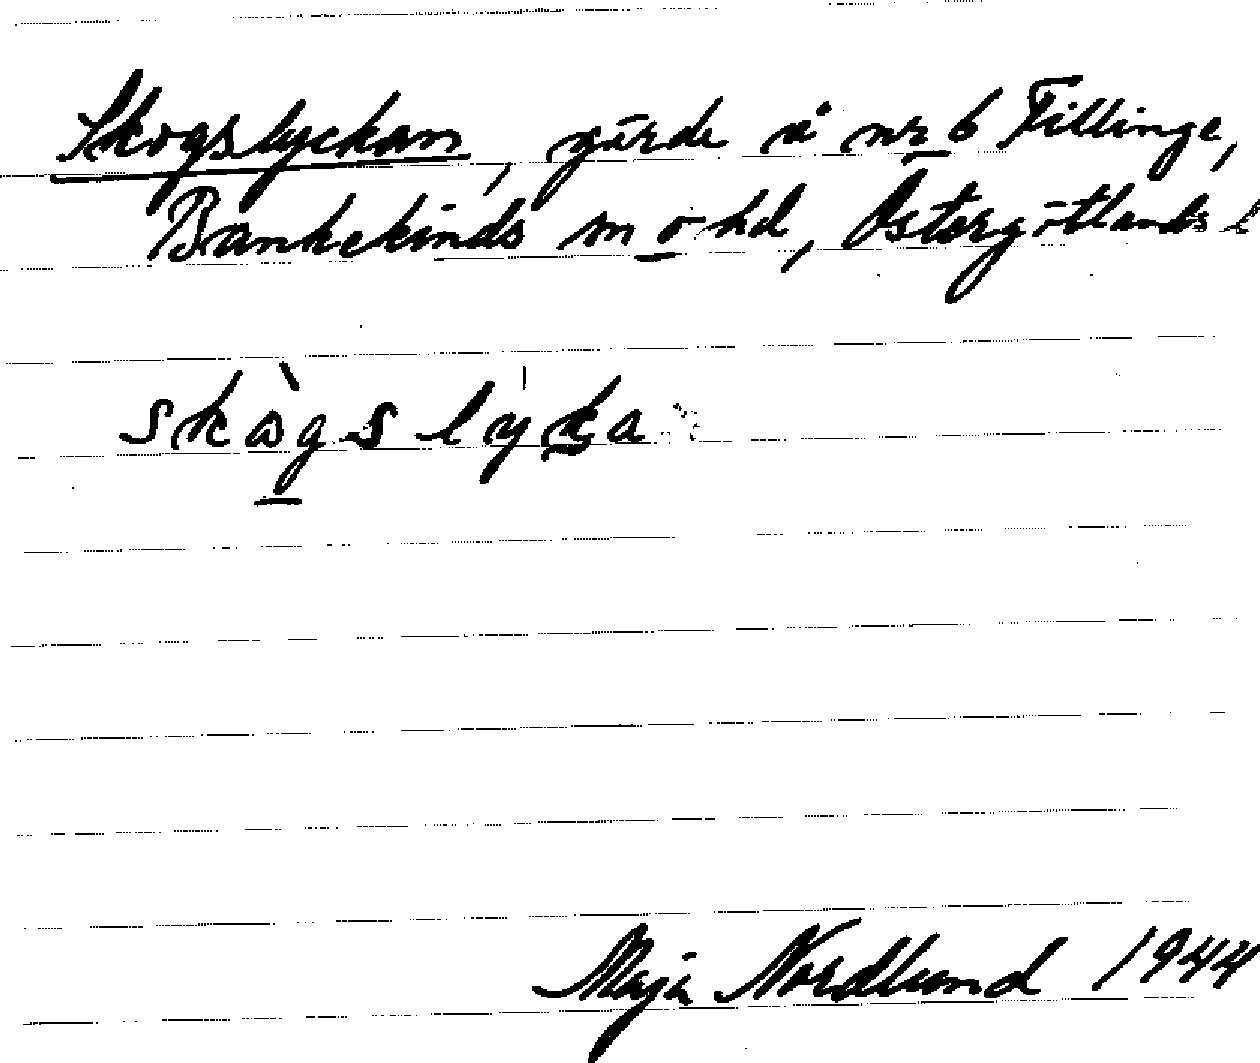 Skogslyckan, gärde å nr 6 Fillinge,
Bankekinds sn o hd, Östergötlands l
skògslyka
Maja Nordlund 1944